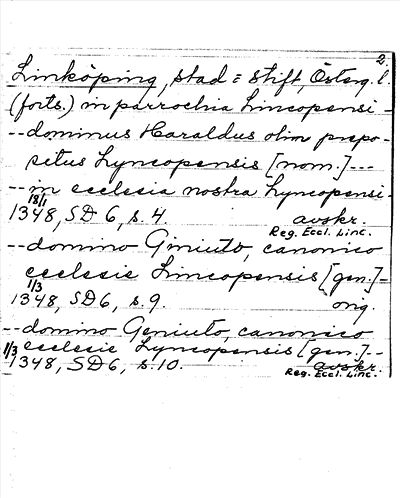 2.
Linköping, stad = stift, Österg. l.
(forts.) in parrochia Lincopensi -
-- dominus Haraldus olim prepo-
situs Lyncopensis [nom.] ---
-- in ecclesia nostra Lyncopensi.
18/1
1348, SD 6, s. 4. avskr.
Reg. Eccl. Linc.
-- domino Giniuto, canonico
ecclesie Lincopensis [gen.] =
1/3
1348, SD6, s. 9. orig.
-- domino Geniuto, canonico
1/3 ecclesie Lyncopensis [gen.] --
1348, SD6, s. 10. avskr.
Reg. Eccl. Linc.